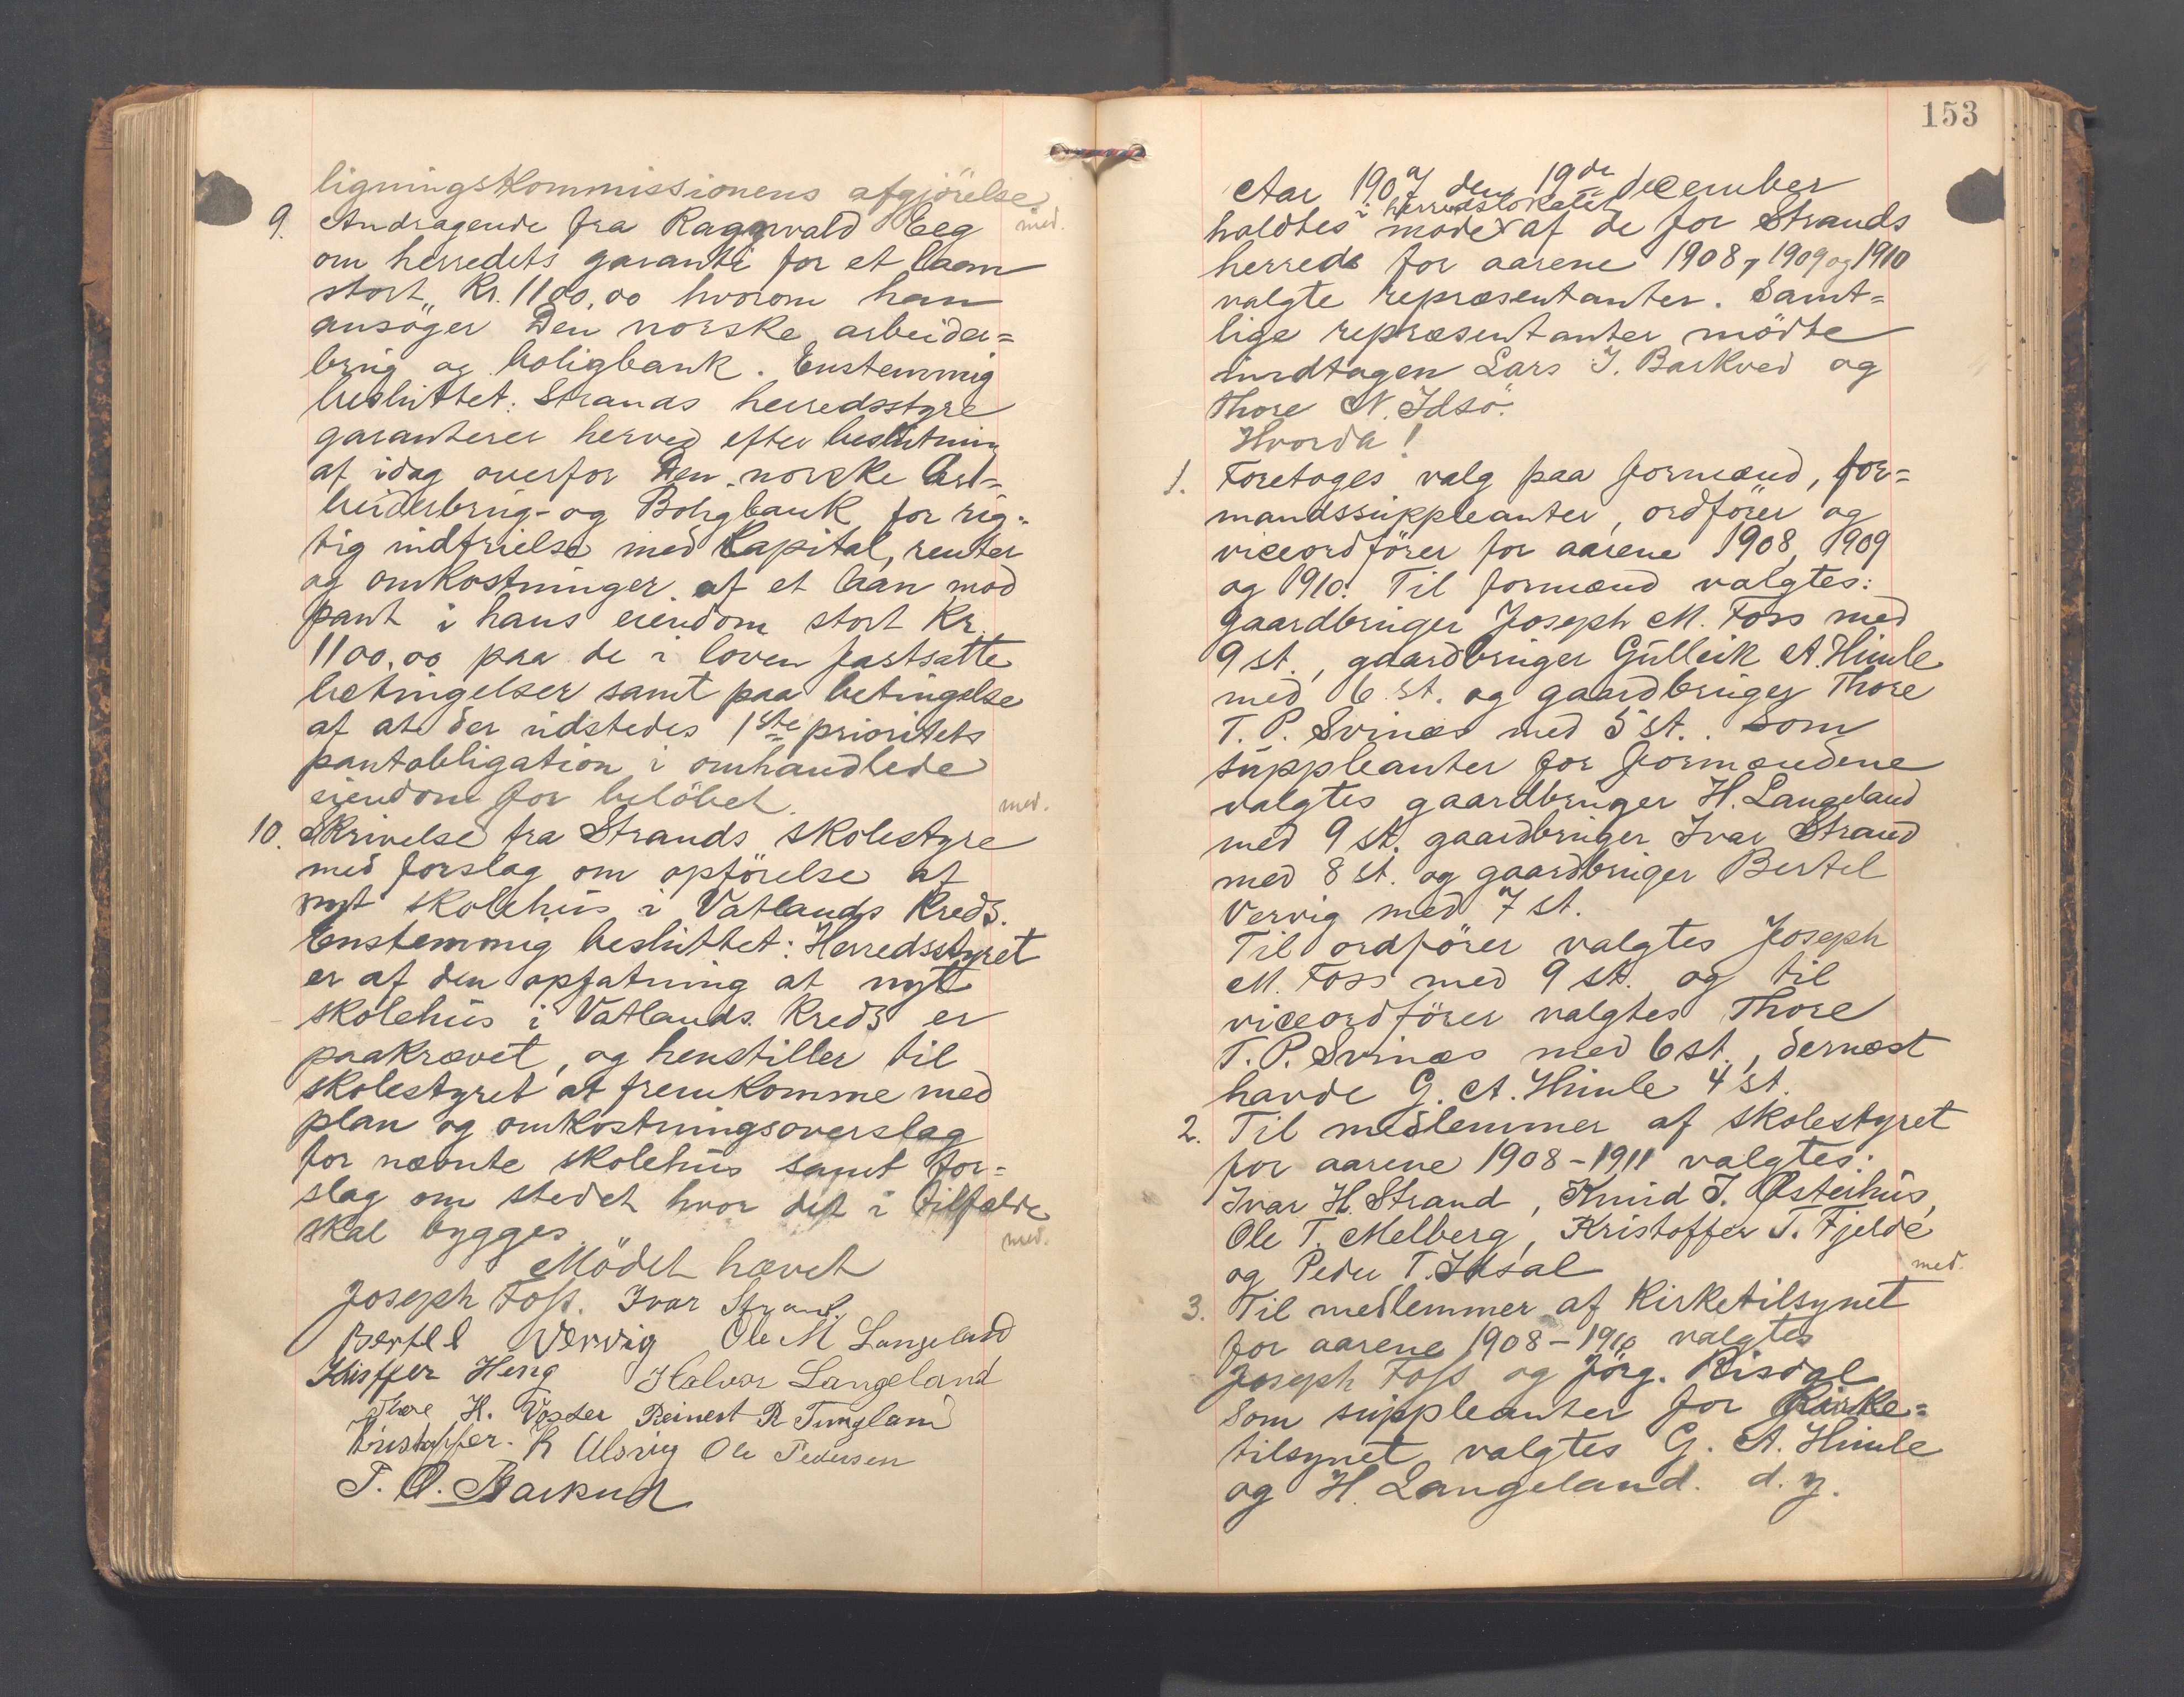 ligningskommissionens afgjörelse
9. Andragende fra Ragnvald Eeg med.
om herredets garanti for et laan
stort Kr. 1100,00 hvorom han
ansöger Den norske arbeider=
brug og boligbank. Enstemmig
besluttet: Strands herredsstyre
garanterer herved efter beslutning
af idag overfor Den norske Ar-
beiderbrug- og Boligbank for rig-
tig indfrielse med Kapital, renter
og omkostninger af et laan mod
pant i hans eiendom stort Kr.
1100,00 paa de i loven fastsatte
betingelser samt paa betingelse
af at der udstedes 1ste prioritets
pantobligation i omhandlede
eiendom for belöbet. med.
10. Skrivelse fra Strands skolestyre
med forslag om opförelse af
nyt skolehus i Vatlands Kreds.
Enstemmig besluttet: Herredsstyret
er af den opfatning at nyt
skolehus i Vatlands Kreds er
paakrævet, og henstiller til
skolestyret at fremkomme med
plan og omkostningsoverslag
for nævnte skolehus samt for=
slag om stedet hvor det i tilfælde
skal bygges. med.
Mödet hævet
Joseph Foss. Ivar Strand.
Bertel Vervig Ole M Langeland
Heng Halvor Langeland
Thore H. Voster Reinert R Tungland
Kristoffer. R Alsvig Ole Pedersen
T. O. Barkved
153
Aar 1907 den 19de december
i herredslokalet
holdtes mode af de for Strands
herred for aarene 1908, 1909 og 1910
valgte repræsentanter. Samt=
lige repræsentanter mödte
undtagen Lars J. Barkved og
Thore N. Idsö.
Hvorda!
1. Foretoges valg paa formænd, for=
mandssuppleanter, ordförer og
viceordförer for aarene 1908, 1909
og 1910. Til formænd valgtes:
gaardbruger Joseph M. Foss med
9 st., gaardbruger Gulleik A. Himle
med 6 st. og gaardbruger Thore
T. P. Svinæs med 5 st.. Som
suppleanter for formændene
valgtes gaardbruger H. Langeland
med 9 st. gaardbruger Ivar Strand
med 8 st. og gaardbruger Bertel
Vervig med 7 st.
Til ordförer valgtes Joseph
M. Foss med 9 st. og til
viceordförer valgtes Thore
T. P. Svinæs med 6 st., dernæst
havde G. A. Himle 4 st.
2. Til medlemmer af skolestyret
for aarene 1908-1911 valgtes:
Ivar H. Strand, Knud J. Østerhus,
Ole T. Melberg, Kristoffer T. Fjelde
og Peder T. Idsal med.
3. Til medlemmer af Kirketilsynet
for aarene 1908-1910 valgtes
Joseph Foss og Jörg. Risdal
Som suppleanter for Kirke=
tilsynet valgtes G. A. Himle
og H. Langeland. d. y.